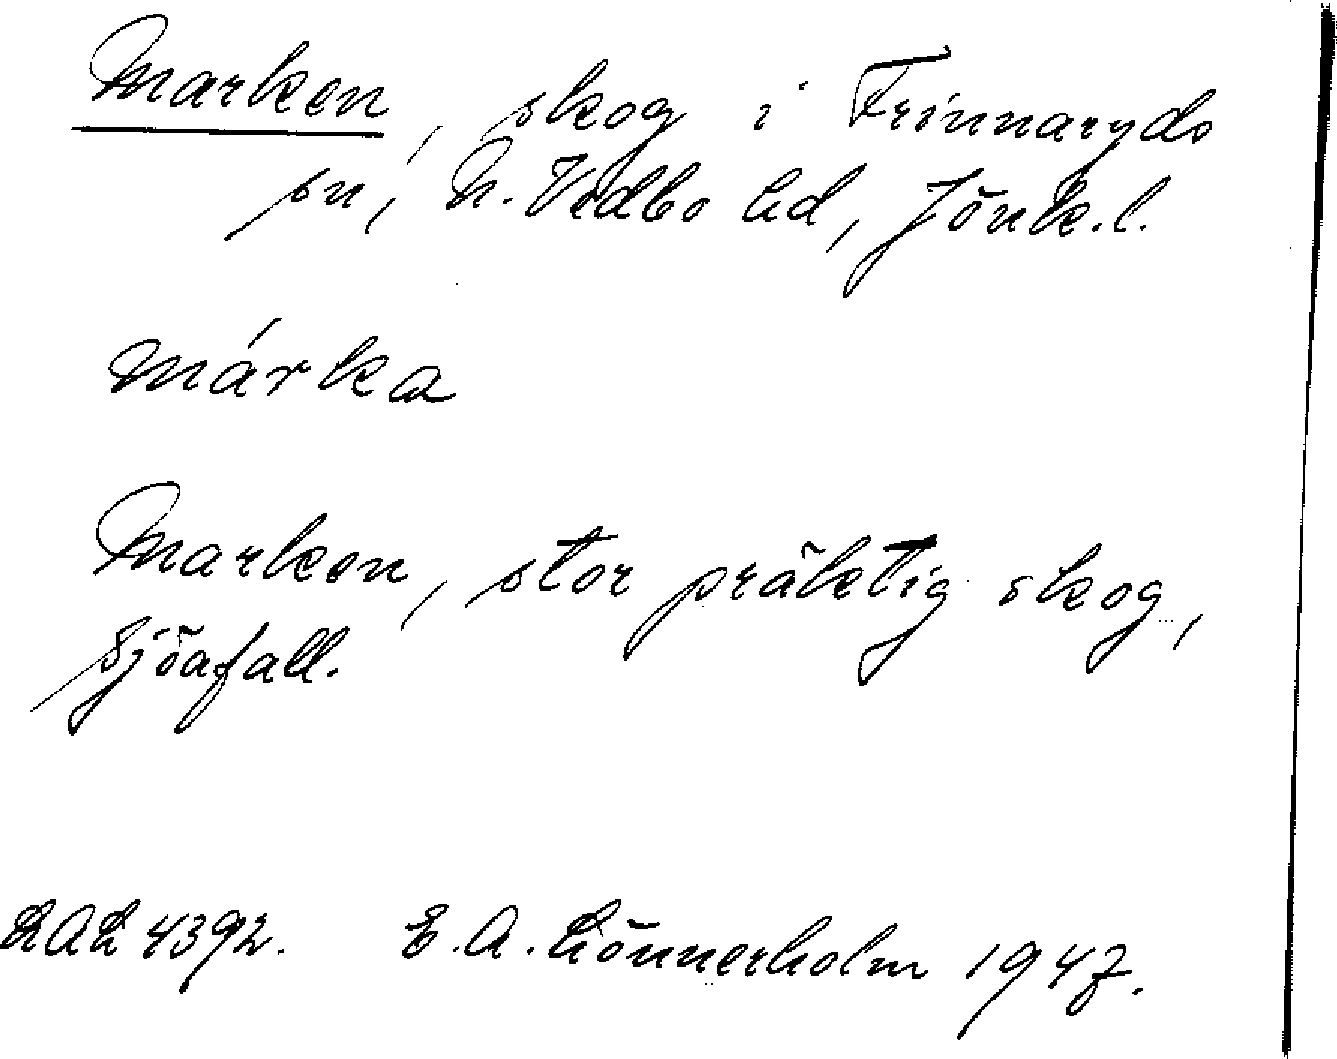 Marken, skog i Frinnaryds
sn, N. Vedbo hd, Jönk. l.
márka
Marken, stor präktig skog,
Sjöafall.
LAL 4392. E. A. Lönnerholm 1947.